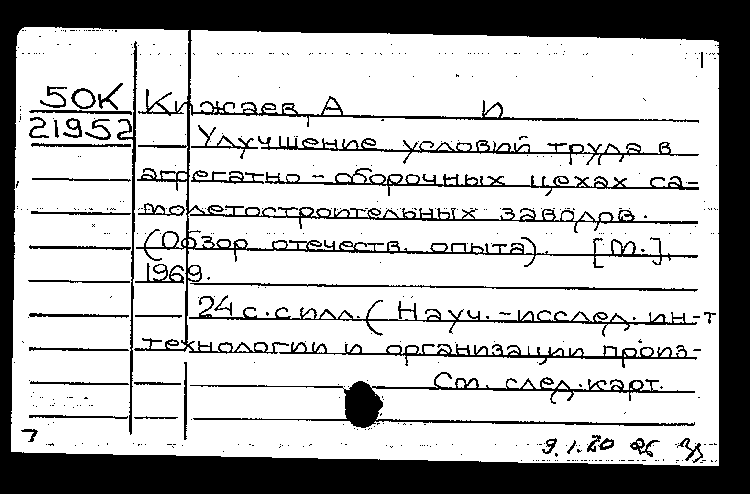 50К Кижаев, А И
21952
Улучшение условий труда в
агрегатно-сборочных цехах са-
молетостроительных заводов.
(Обзор отечеств. опыта). [М.],
1969.
24 с. с илл. (Науч.-исслед. ин-т
технологии и организации произ-
См. след. карт.
7 9.1.70